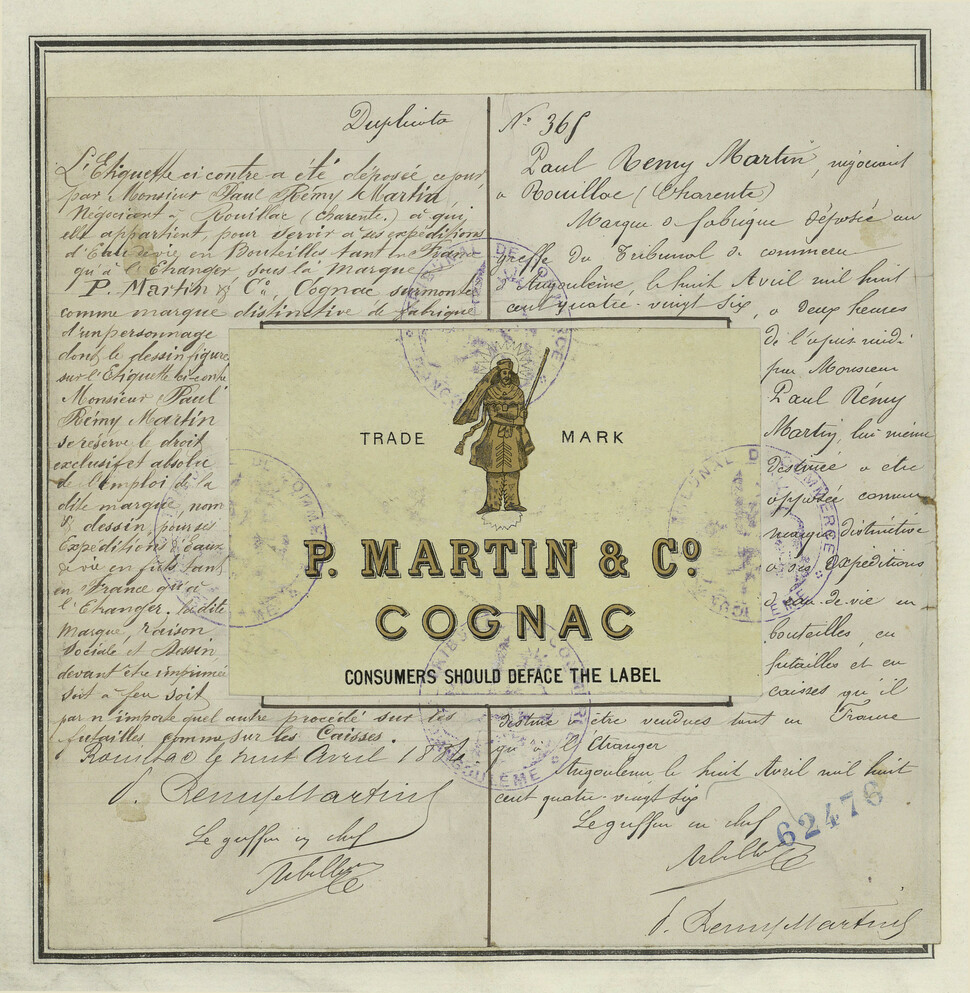 Duplicata
L'Etiquette ci contre a été déposée ce jour,
par Monsieur Paul Rémy Martin,
Négociant à Rouillac (Charente.) à qui
elle appartient, pour servir à ses expéditions
d'Eau de vie en Bouteilles tant en France
qu'à l'Etranger sous la marque
P. Martin & Co, Cognac surmonté
comme marque distinctive de fabrique
d'un personnage
dont le dessin figure
sur l'Etiquette ci-contre
Monsieur Paul
Rémy Martin
se réserve le droit
exclusif et absolu
de l'emploi de la
dite marque, nom
& dessin, pour ses
Expéditions d'Eaux
de vie en fûts tant
en France qu'à
l'Etranger. Ladite
Marque, raison
Sociale et Dessin
devant être imprimés
soit à feu soit
par n'importe quel autre procédé sur les
futailles comme sur les Caisses.
Rouillac le huit Avril 1886
P. Remy Martin
Le greffier en chef
No 365
Paul Remy Martin, négociant
à Rouillac (Charente)
Marque de fabrique déposée au
greffe du Tribunal de commerce
d'Angoulême, le huit Avril mil huit
cent quatre-vingt six, à deux heures
de l'après midi
par Monsieur
Paul Rémy
Martin, lui même
destinée à être
apposée comme
marque distinctive
à ses expéditions
d'eau-de-vie en
bouteilles, en
futailles et en
caisses qu'il
destine à être vendues tant en France
qu'à l'étranger
Angoulême le huit Avril mil huit
cent quatre-vingt six
Le greffier en chef
62476
P. Remy Martin
TRADE MARK
P. MARTIN & Co.
COGNAC
CONSUMERS SHOULD DEFACE THE LABEL
TRIBUNAL DE COMMERCE
ANGOULÊME